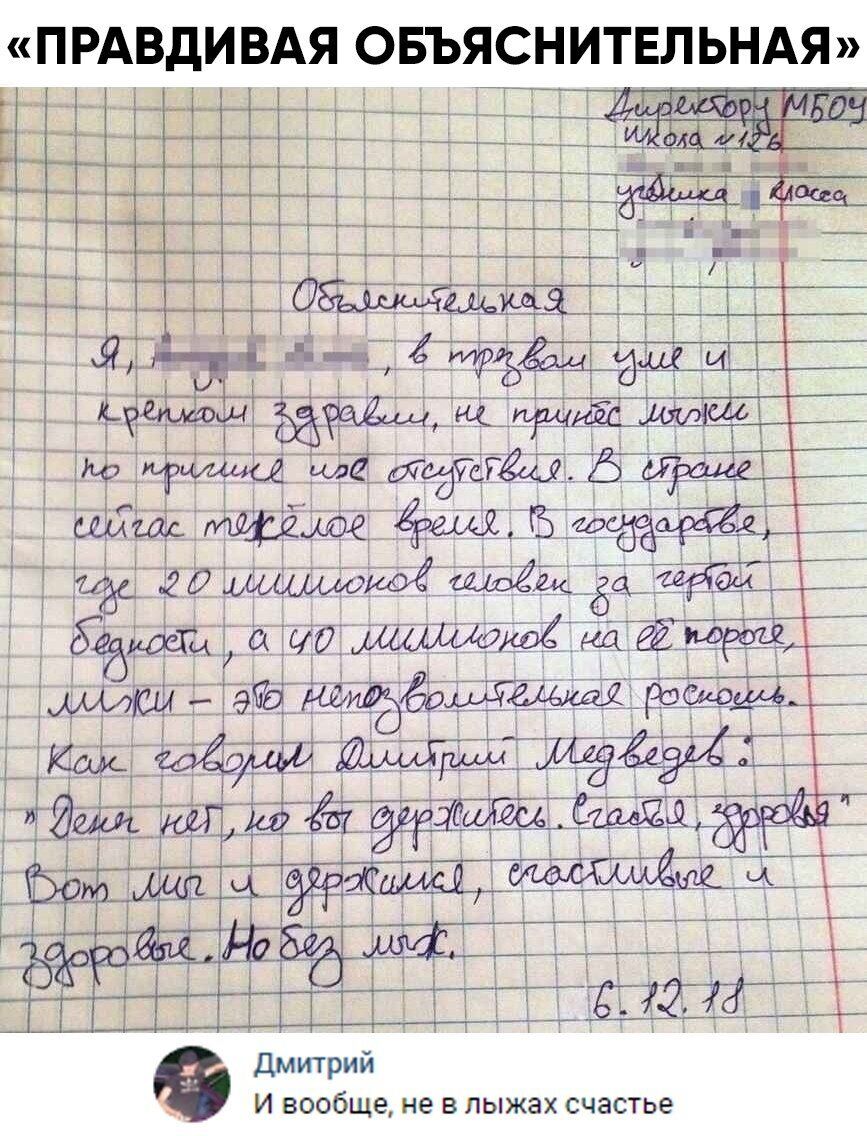 «ПРАВДИВАЯ ОБЪЯСНИТЕЛЬНАЯ»
Директору МБОУ
школа №126
ученика класса
Объяснительная
Я, , в трезвом уме и
крепком здравии, не принёс лыжи
по причине их отсутствия. В стране
сейчас тяжёлое время. В государстве,
где 20 миллионов человек за чертой
бедности, а 40 миллионов на её пороге,
лыжи – это непозволительная роскошь.
Как говорил Дмитрий Медведев:
"Денег нет, но вы держитесь. Счастья, здоровья"
Вот мы и держимся, счастливые и
здоровые. Но без лыж.
6.12.18
Дмитрий
И вообще, не в лыжах счастье